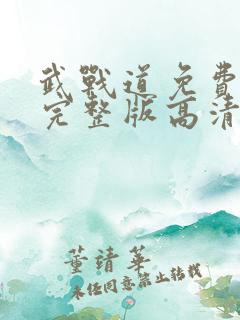 武戰道免費
完整版高清
董靖華
未經同意禁止轉載